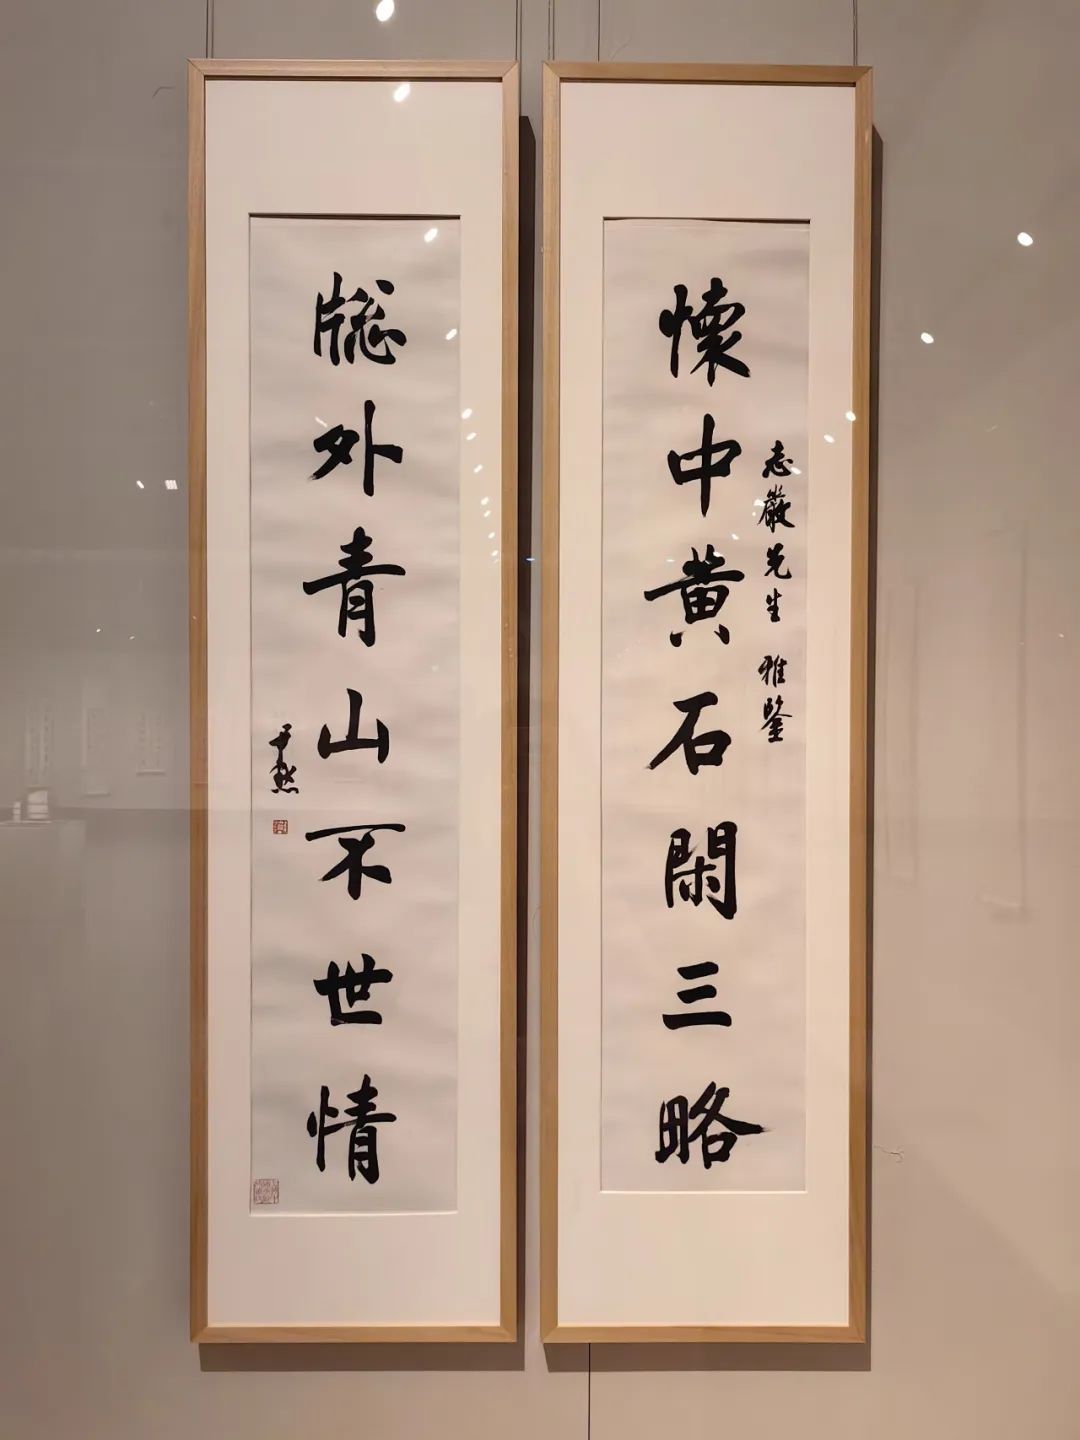 懷中黃石閑三略
志嚴先生 雅鑒
牕外青山不世情
尹默